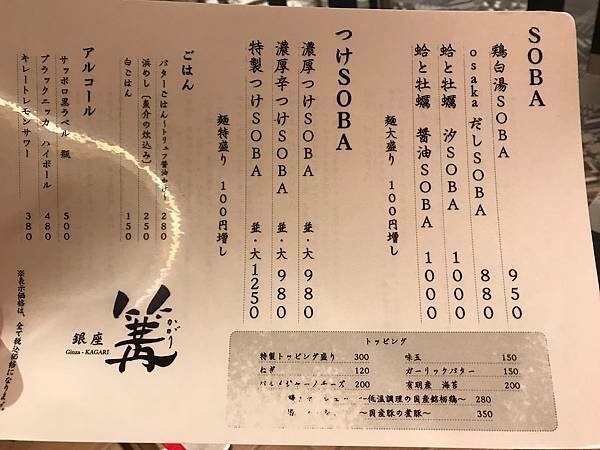 SOBA
鶏白湯SOBA 950
osakaだしSOBA 880
蛤と牡蠣 汐SOBA 1000
蛤と牡蠣 醤油SOBA 1000
麺大盛り 100円増し
つけSOBA
濃厚つけSOBA 並・大 980
濃厚辛つけSOBA 並・大 980
特製つけSOBA 並・大 1250
麺特盛り 100円増し
ごはん
バターごはん〜トリュフ醤油かけ〜 280
浜めし(長介の炊込み) 250
白ごはん 150
アルコール
サッポロ黒ラベル 瓶 500
ブラックニッカ ハイボール 480
キレートレモンサワー 380
※表示価格は、全て税込価格になります。
銀座
Ginza - KAGARI
篝
かがり
トッピング
特製トッピング盛り 300
ねぎ 120
パルメジャーノチーズ 200
味玉 150
ガーリックバター 150
有明産 海苔 200
〜低温調理の国産銘柄鶏〜 280
〜国産豚の煮豚〜 350